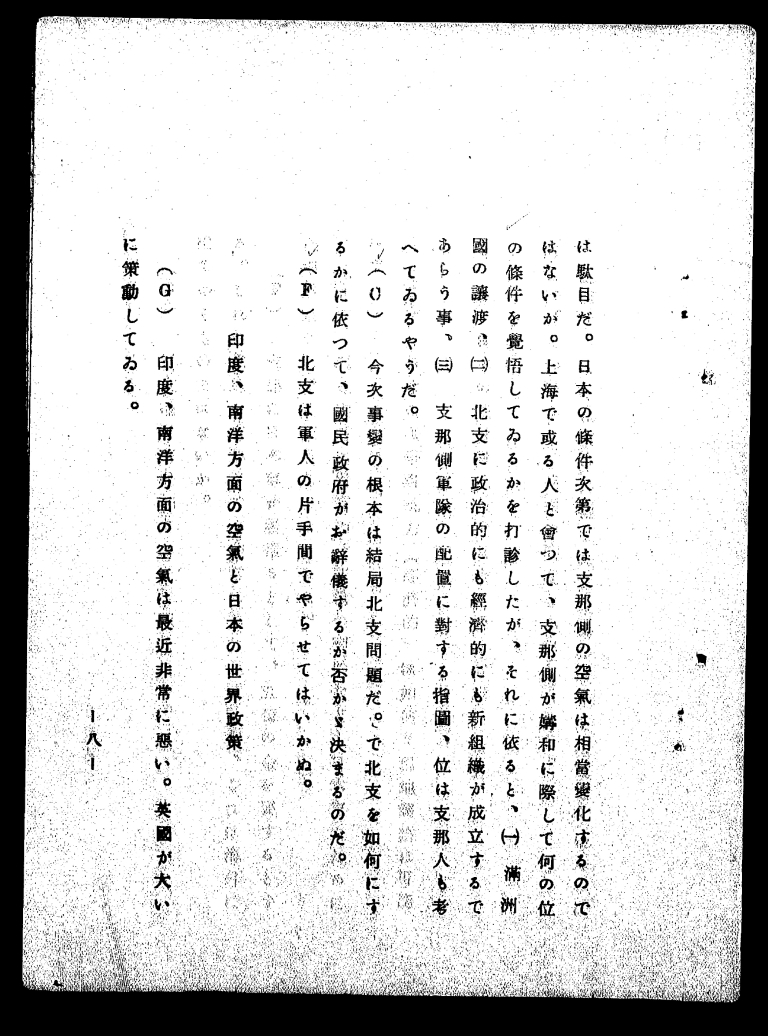 は駄目だ。日本の條件次第では支那側の空氣は相當變化するので
はないか。上海で或る人と會つて、支那側が媾和に際して何の位
の條件を覺悟してゐるかを打診したが、それに依ると、㈠ 滿洲
國の讓渡、㈡ 北支に政治的にも經濟的にも新組織が成立するで
あらう事、㈢ 支那側軍隊の配置に對する指圖、位は支那人も考
へてゐるやうだ。
(C) 今次事變の根本は結局北支問題だ。で北支を如何にす
るかに依つて、國民政府がお辭儀するか否かゞ決まるのだ。
(F) 北支は軍人の片手間でやらせてはいかぬ。
印度、南洋方面の空氣と日本の世界政策
(G) 印度、南洋方面の空氣は最近非常に惡い。英國が大い
に策動してゐる。
—八—